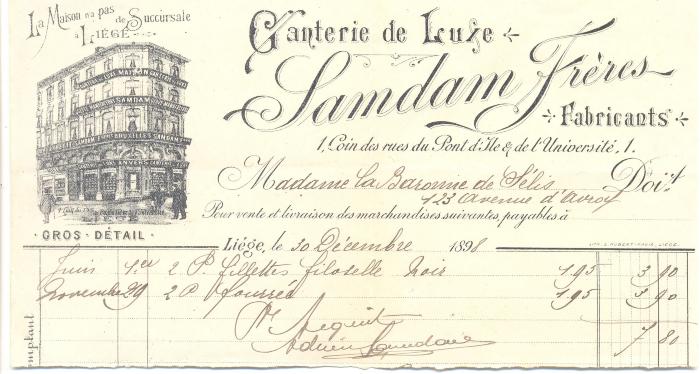 La Maison n'a pas
de Succursale
à LIÉGE
Ganterie de Luxe
Samdam Frères
Fabricants
1, Coin des rues du Pont d'Ile & de l'Université, 1.
Madame la Baronne de Sélis Doit
123 Avenue d'Avroy
Pour vente et livraison des marchandises suivantes, payables à
LIÉGE
GROS - DÉTAIL
Liége, le 30 Décembre 1898
Juin 1er 2 P. fillettes filoselle Noir 1.95 3 90
Novembre 29 2 P fourrés 1.95 3 90
7 80
Pr Acquit